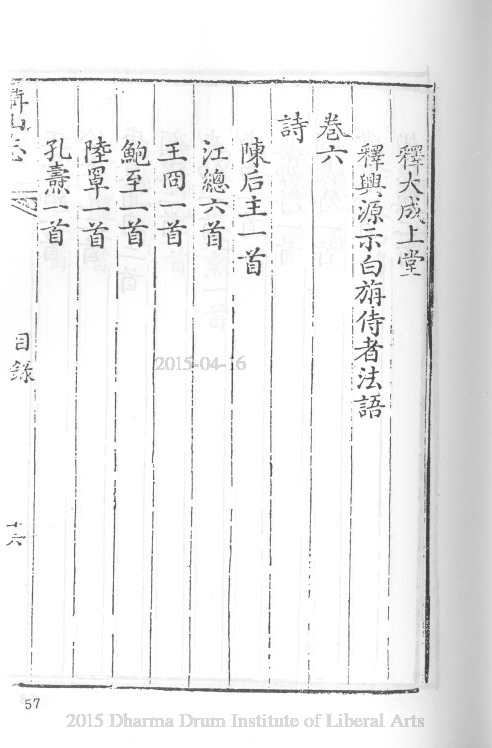 釋大成上堂
釋興源示白旃侍者法語
卷六
詩
陳后主一首
江總六首
王冏一首
鮑至一首
陸罩一首
孔燾一首
山志
目錄
十六
57
2015-04-16
2015 Dharma Drum Institute of Liberal Arts